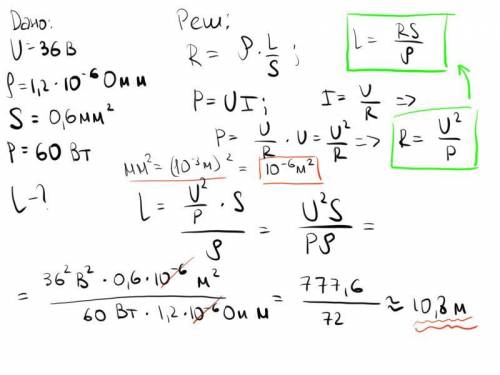 Дано:
U = 36 В
ρ = 1,2 · 10⁻⁶ Ом м
S = 0,6 мм²
P = 60 Вт
L - ?
Реш:
R = ρ · L/S ;
L = RS/ρ
P = UI ; I = U/R =>
P = U/R · U = U²/R => R = U²/P
мм² = (10⁻³м)² = 10⁻⁶м²
L = (U²/P · S)/ρ = U²S/Pρ =
= (36² В² · 0,6 · 10⁻⁶ м²)/(60 Вт · 1,2 · 10⁻⁶ Ом м) = 777,6/72 ≈ 10,8 м